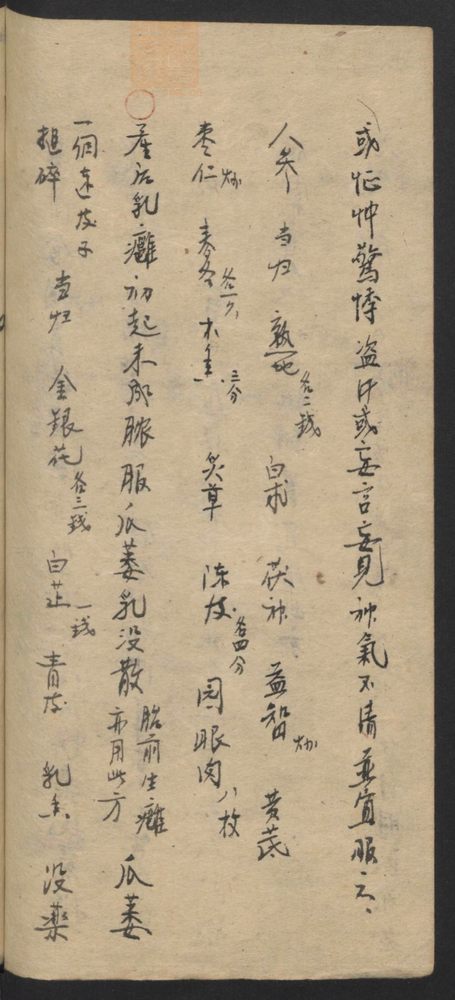 或怔忡驚悸盗汗或妄言妄見神氣不清並宜服之、
人參 当归 熟地各二錢 白术 茯神 益智炒 黄茋
枣仁炒 麦冬各一 木香三分 炙草 陈皮各四分 圆眼肉八枚
産后乳癰初起未成膿服瓜蒌乳没散胎前生癰亦用此方 瓜蒌
一個連皮子搥碎 当归 金銀花各三錢 白芷一錢 青皮 乳香 没薬